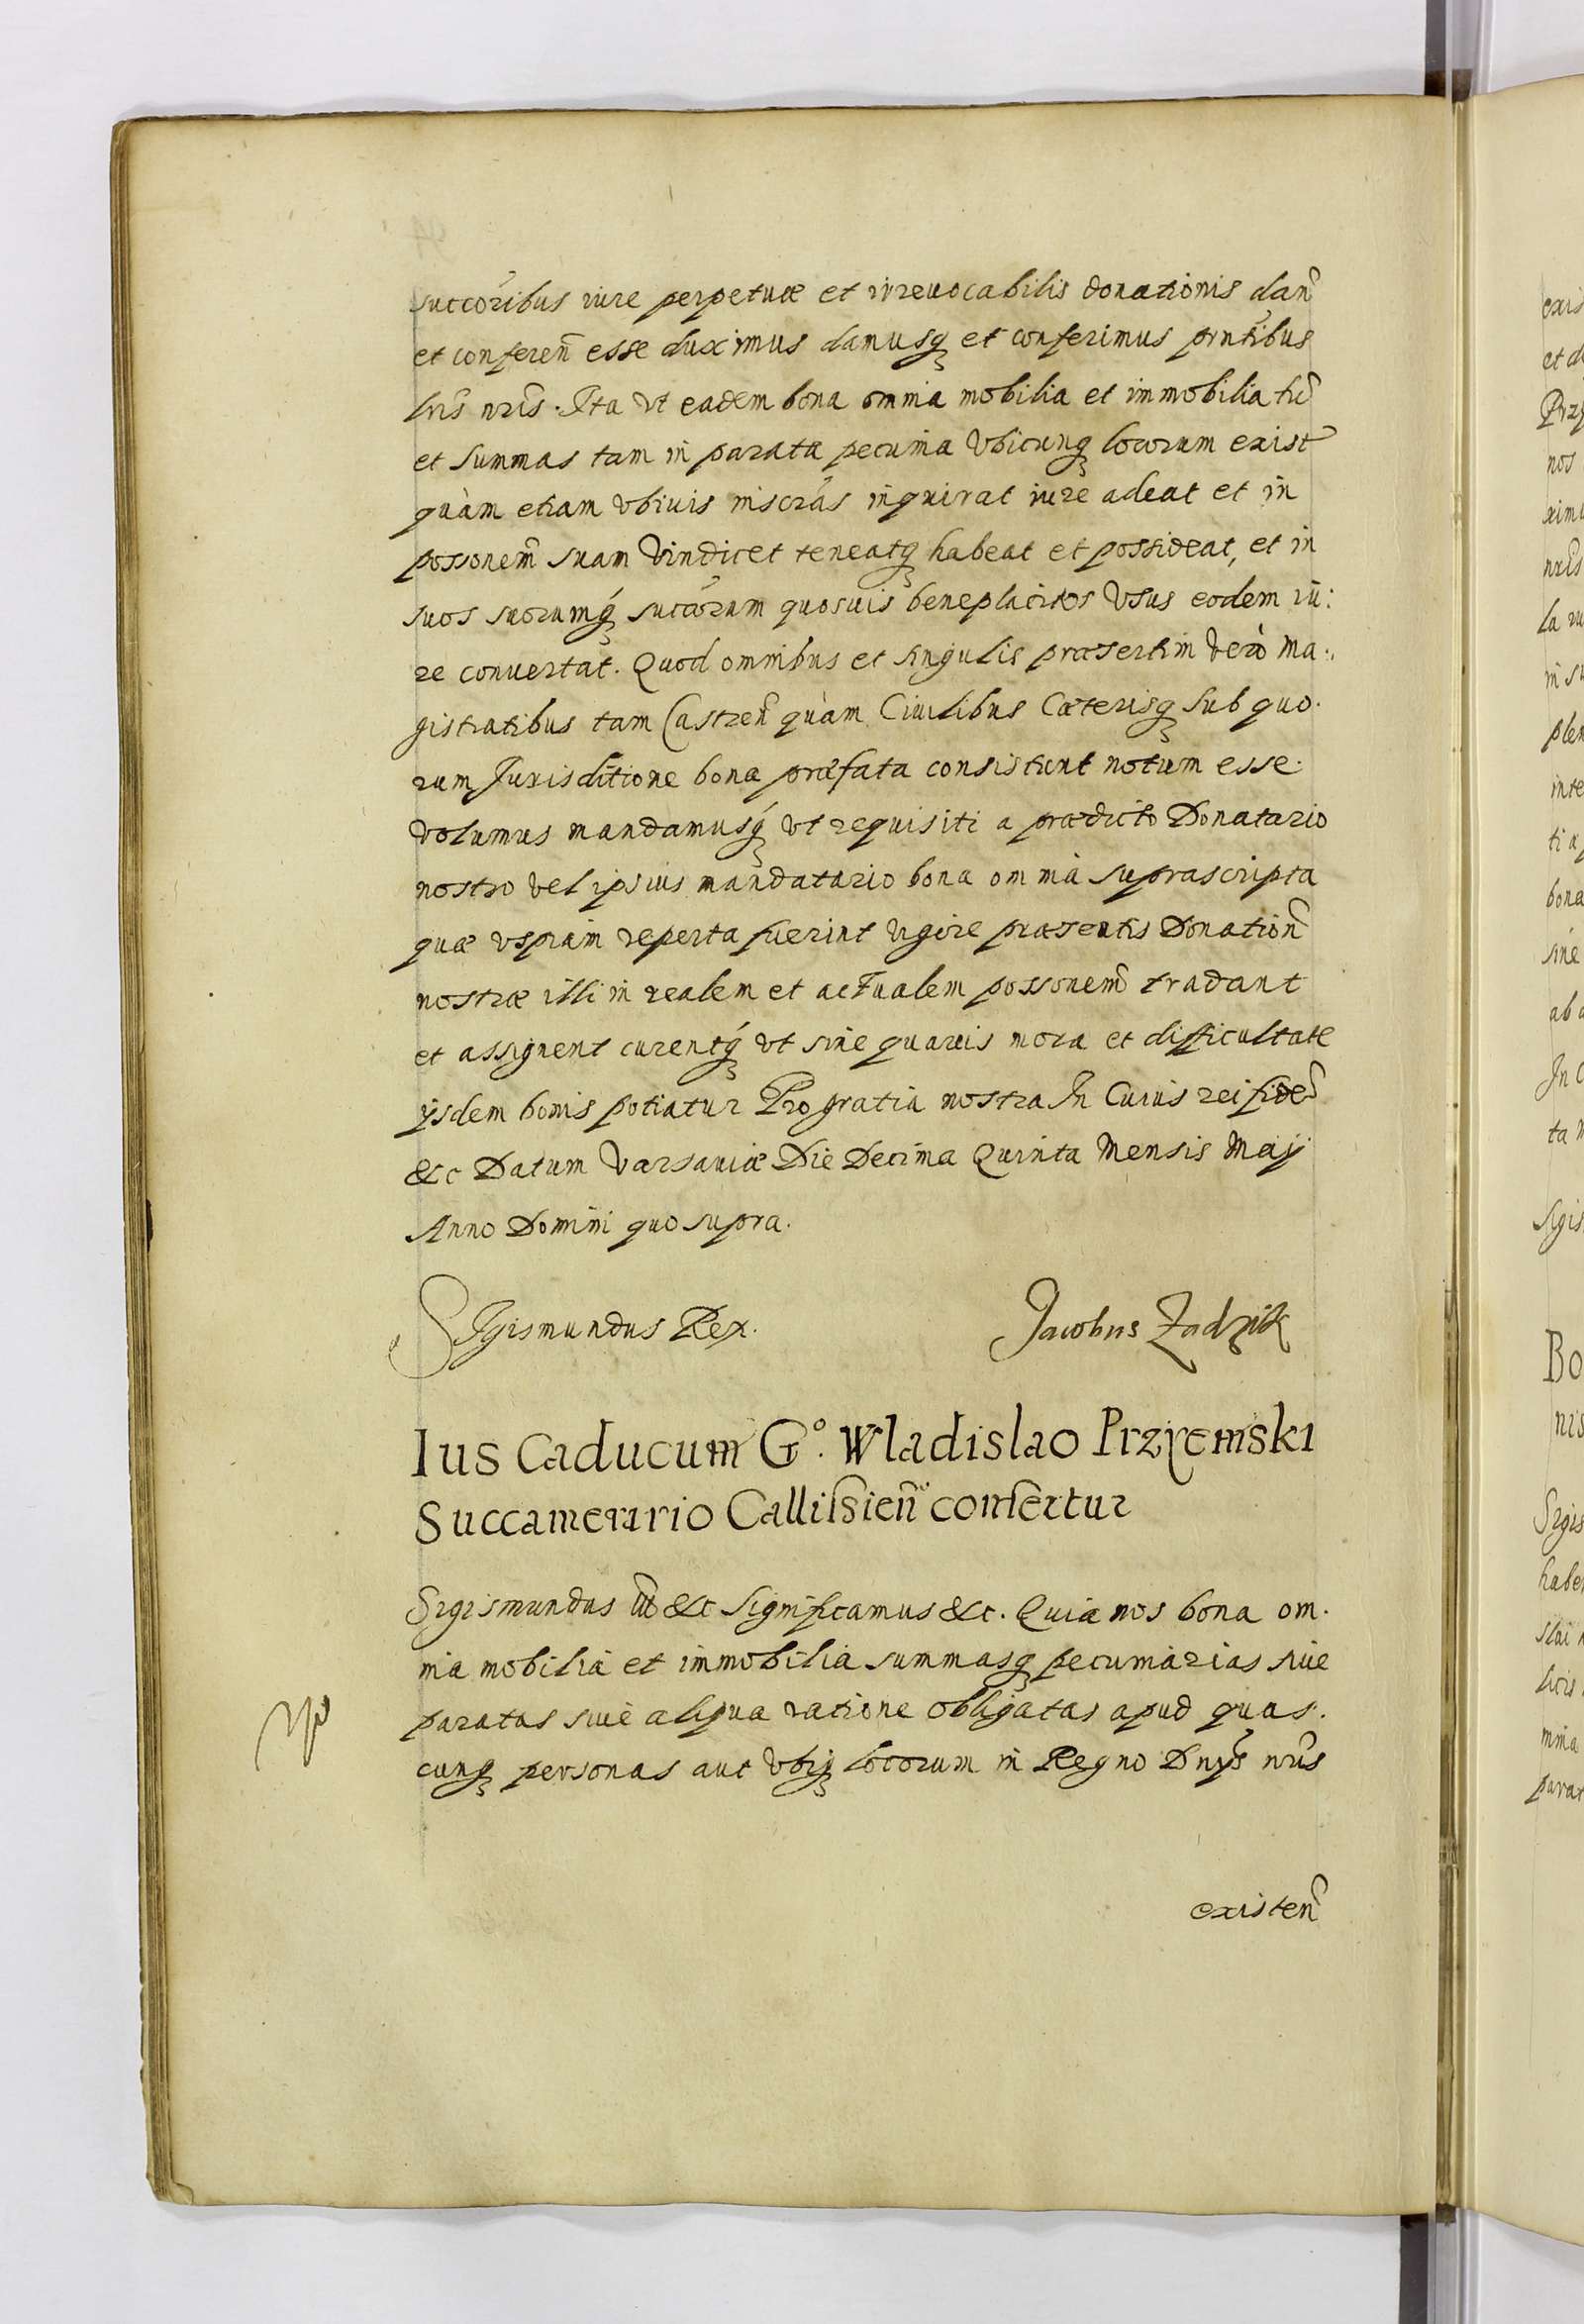 succoribus iure perpetuæ et irreuocabilis donationis dañ
et confereñ esse duximus damusq et conferimus pñtibus
lris nris. Ita vt eadem bona omnia mobilia et immobilia
et Summas tam in parata pecunia vbicunq locorum exist
quàm etiam vbiuis inscras inquirat iure adeat et in
possonem suam vindicet teneatq habeat et possideat, et in
suos suorumq succorum quosuis beneplacitos vsus eodem iu:
re conuertat. Quod omnibus et singulis præsertim verò ma.
gistratibus tam Castreñ quàm Ciuilibus Cæterisq sub quo.
rum Jurisditione bona præfata consistunt notum esse.
volumus mandamusq vt requisiti a prædicto Donatario
nostro vel ipsius mandatario bona omnia suprascripta
quæ vspiam reperta fuerint vigore præsentis Donation
nostræ illi in realem et actualem possonem tradant
et assignent curentq vt sine quauis mora et difficultate
ijsdem bonis potiatur Pro gratia nostra In Cuius rei fidem
&c Datum Varsauiæ Die Decima Quinta Mensis Maij
Anno Domini quo supra.
Sigismundus Rex. Jacobus Zadzik
Ius Caducum Gº. Wladislao Przyiemski
Succamerario Callisieñ confertur
Sigismundus &c Significamus &c. Quia nos bona om.
nia mobilia et immobilia summasq pecuniarias siue
paratas siue aliqua ratione obligatas apud quas.
cunq personas aut vbiq locorum in Regno Dnijs nris
existeñ
exis
et d
Prz
nos
xim
nris
la
in su
plen
inte
ti a
bona
sine
ab a
In C
ta
Sigis
Bo
nis
Sigis
habe
slai
licis
mnia
parat